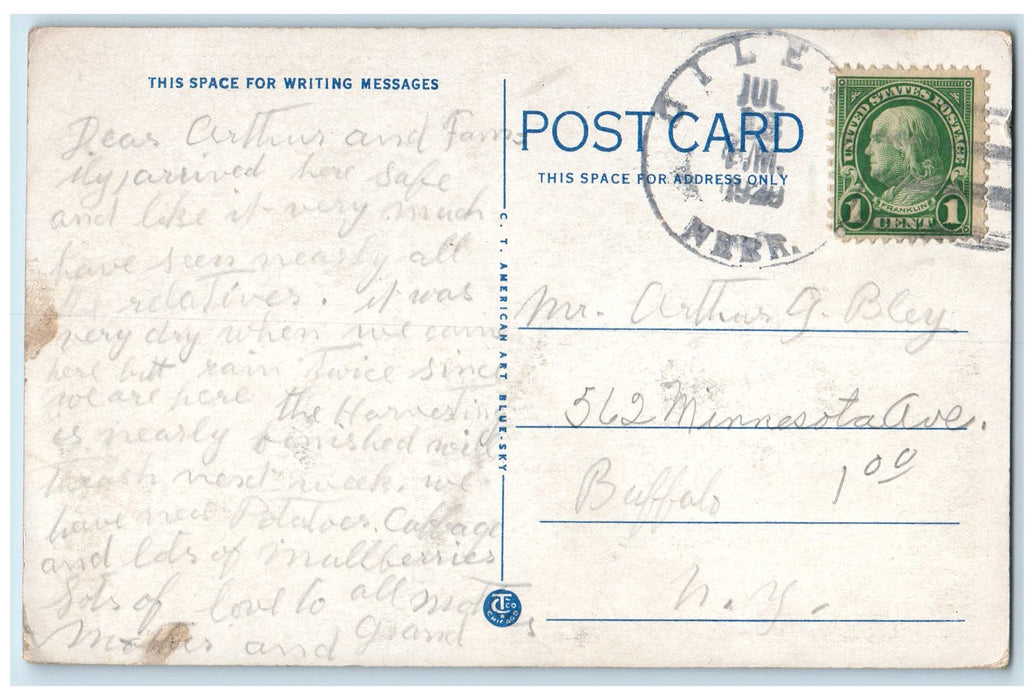 THIS SPACE FOR WRITING MESSAGES
Dear Arthur and Fam
ily, arrived here save
and like it very much
have seen nearly all
relatives. it was
very dry when we came
here but rain twice since
we are here the Harvesting
is nearly finished will
thrash next week. we
have new Potatoes. Cabbage
and lots of mullberries
Lots of love to all
Mother and Grand
C. T. AMERICAN ART BLUE-SKY
CHICAGO
POST CARD
THIS SPACE FOR ADDRESS ONLY
JUL
NEBR.
UNITED STATES POSTAGE
FRANKLIN
1 CENT 1
Mr. Arthur G. Bley
562 Minnesota Ave.
Buffalo
1 00
N. Y.